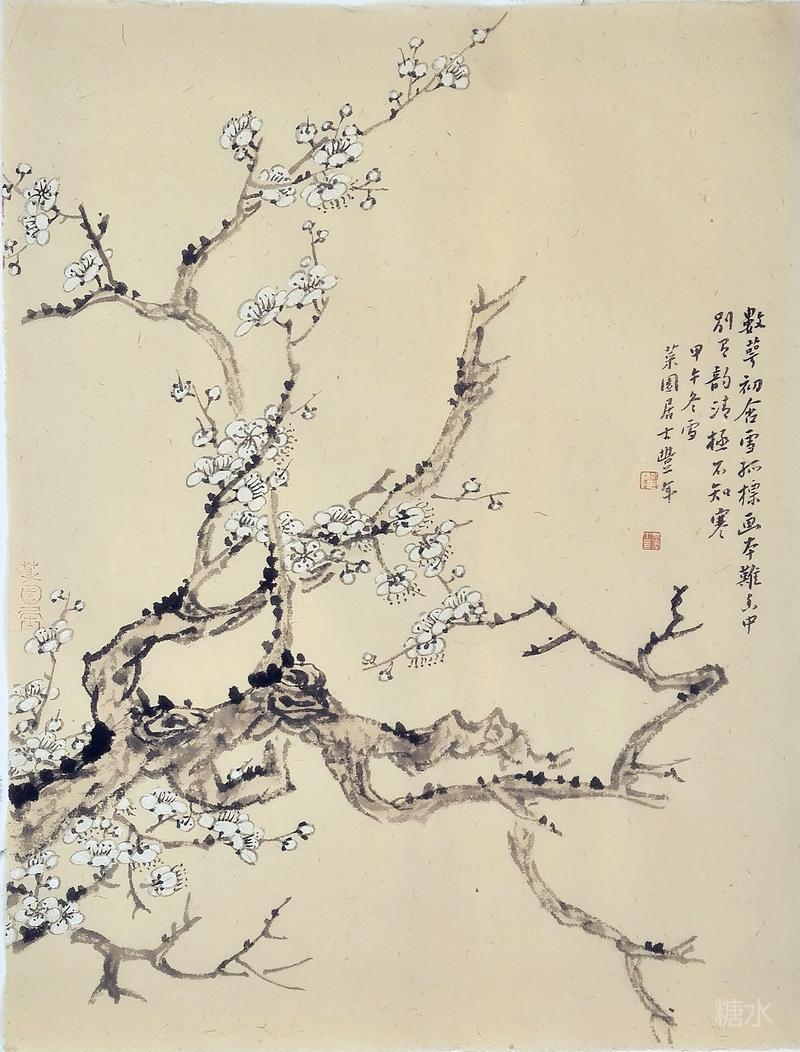 數萼初含雪孤標画本難香中
別有韵清極不知寒
甲午冬雪
菜園居士豐年
菜園居
糖水